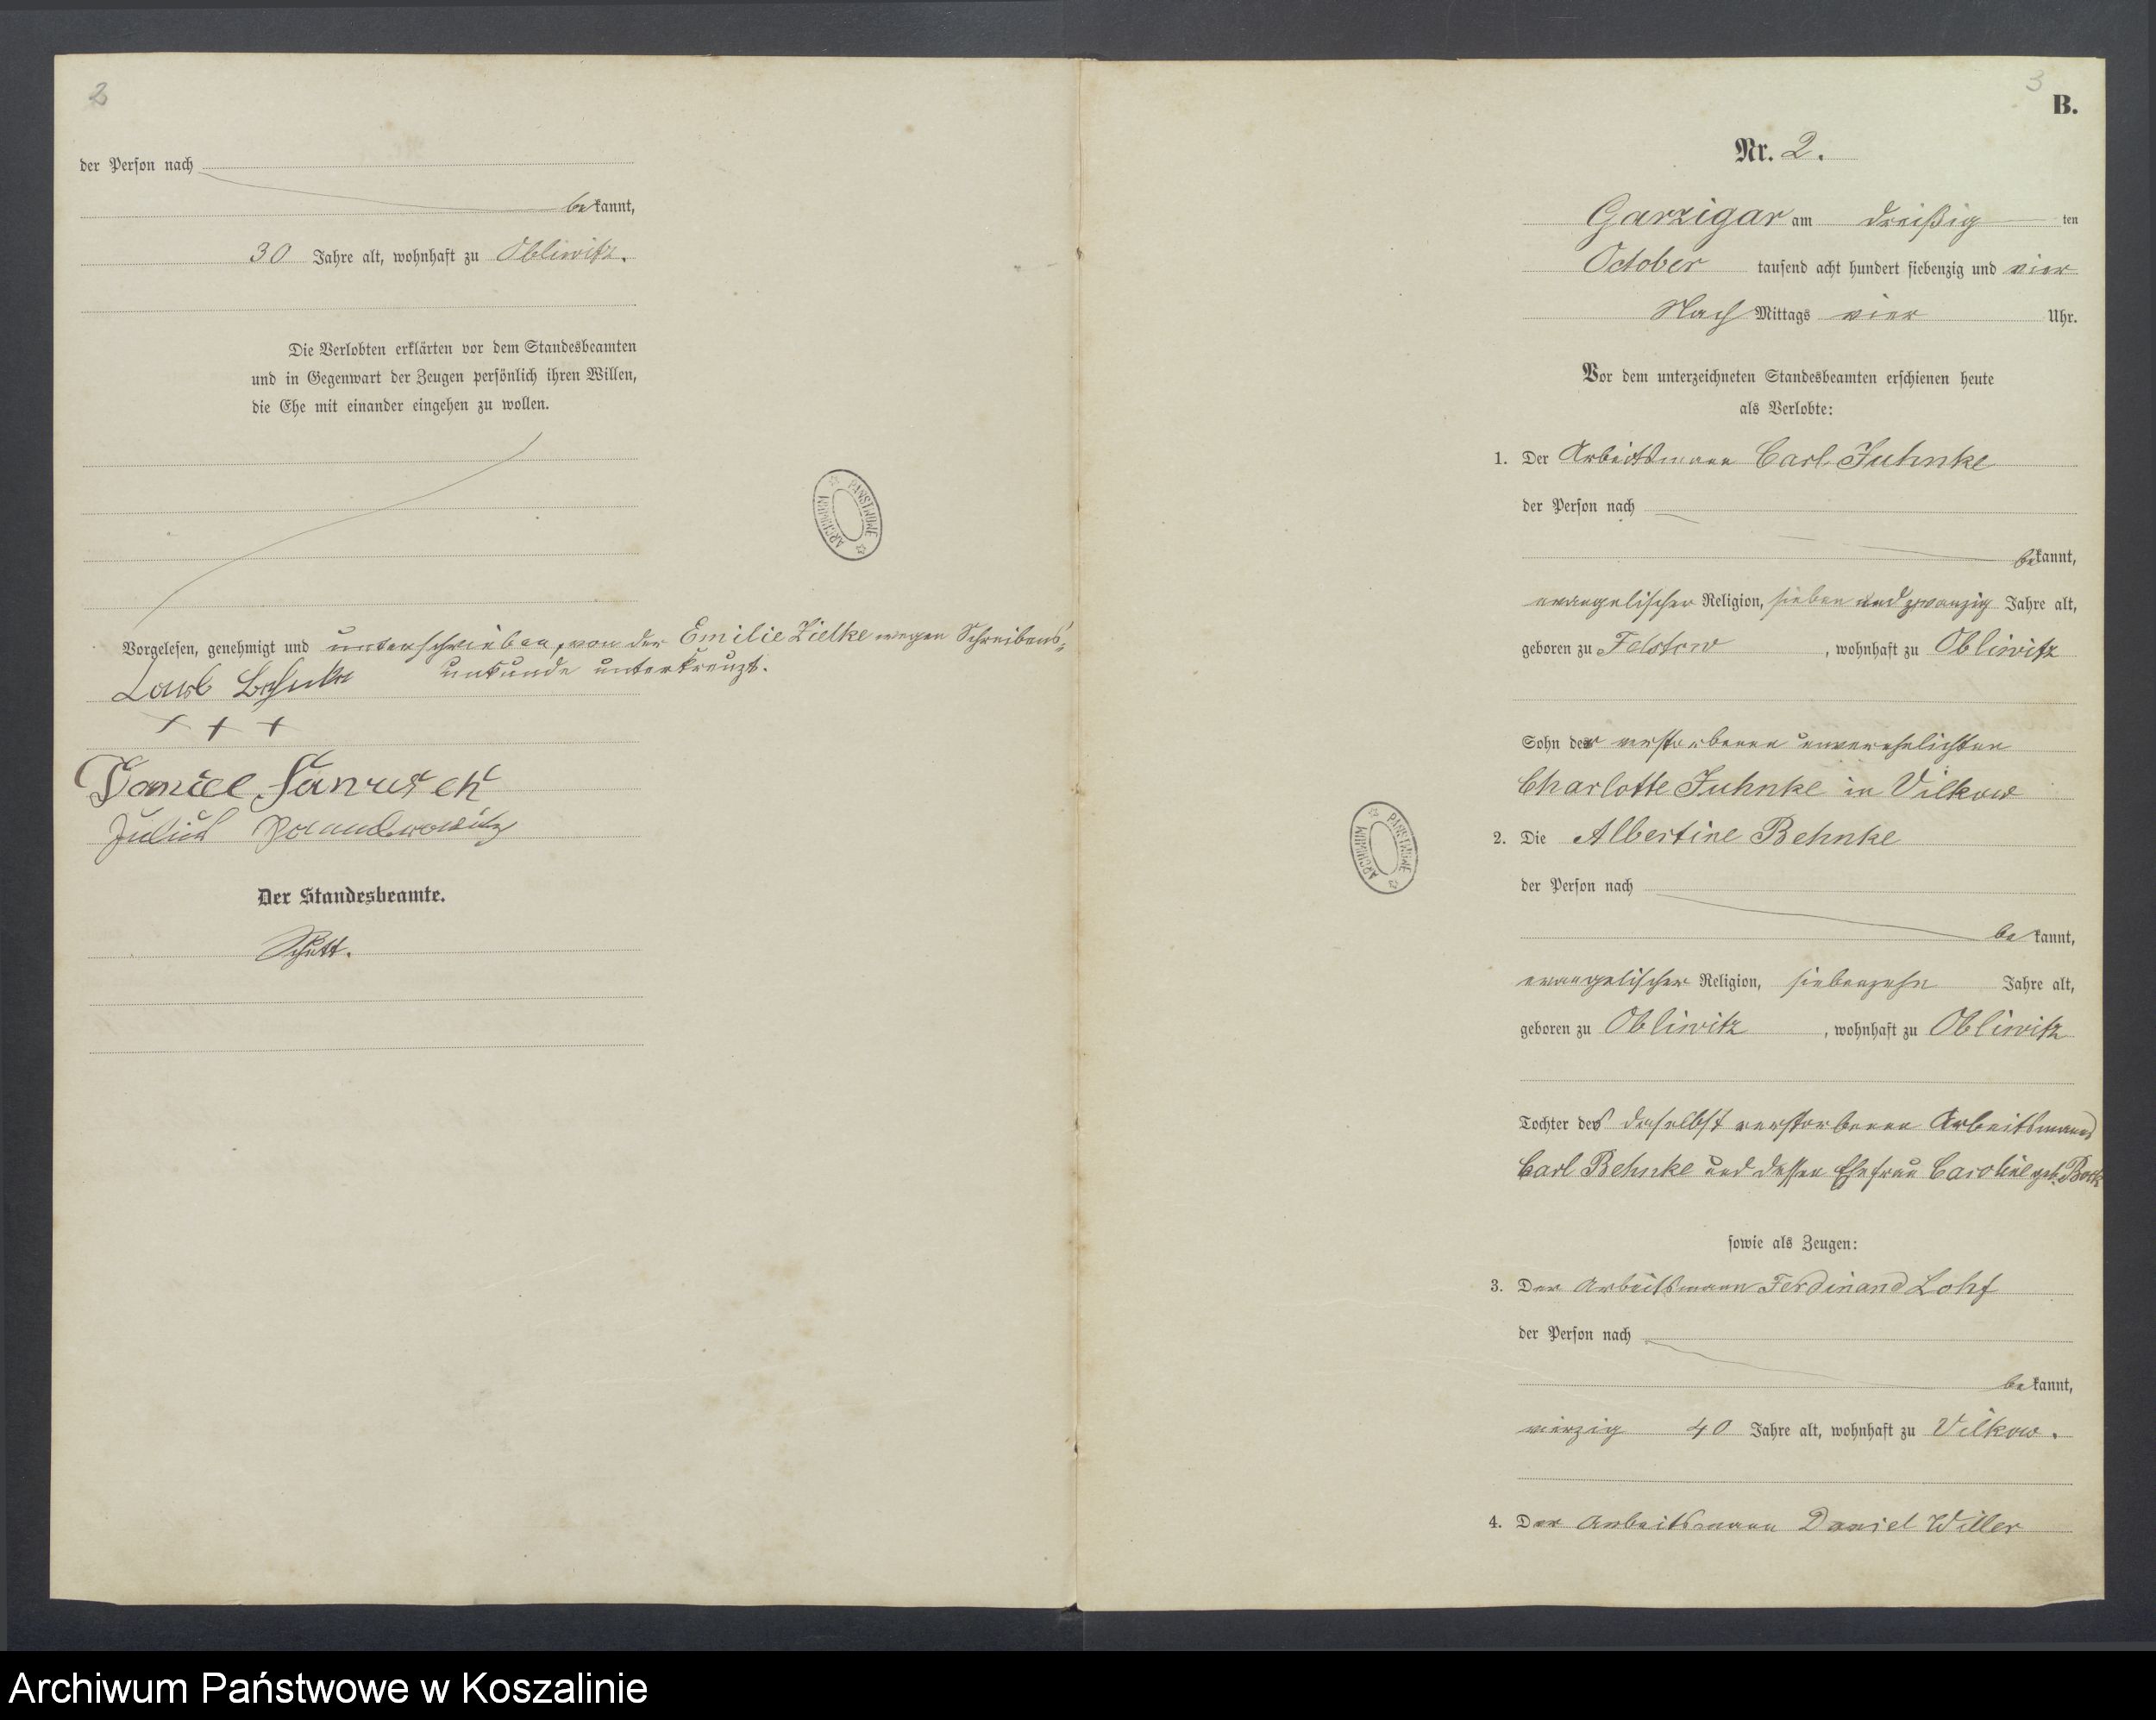 2
der Person nach
bekannt,
30 Jahre alt, wohnhaft zu Obliwitz.
Die Verlobten erklärten vor dem Standesbeamten
und in Gegenwart der Zeugen persönlich ihren Willen,
die Ehe mit einander eingehen zu wollen.
Vorgelesen, genehmigt und unterschrieben, von der Emilie Zielke wegen Schreibens-
unkunde unterkreuzt.
+ + +
Daniel
Der Standesbeamte.
Schutt.
ARCHIWUM PAŃSTWOWE
3
B.
Nr. 2.
Garzigar am dreißig ten
October tausend acht hundert siebenzig und vier
Nach Mittags vier Uhr.
Vor dem unterzeichneten Standesbeamten erschienen heute
als Verlobte:
1. Der Arbeitsmann Carl Juhnke
der Person nach
bekannt,
evangelischer Religion, sieben und zwanzig Jahre alt,
geboren zu Felstow, wohnhaft zu Obliwitz
Sohn der verstorbenen unverehelichten
Charlotte Juhnke in Vilkow
2. Die Albertine Behnke
der Person nach
bekannt,
evangelischer Religion, siebenzehn Jahre alt,
geboren zu Obliwitz, wohnhaft zu Obliwitz
Tochter des daselbst verstorbenen Arbeitsmanns
Carl Behnke und dessen Ehefrau Caroline geb. Bock
sowie als Zeugen:
3. Der Arbeitsmann Ferdinand Lohf
der Person nach
bekannt,
vierzig 40 Jahre alt, wohnhaft zu Vilkow.
4. Der Arbeitsmann Daniel Willer
ARCHIWUM PAŃSTWOWE
Archiwum Państwowe w Koszalinie